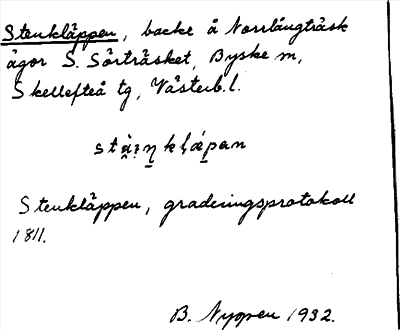 Stenkläppen, backe å Norrlångträsk
ägor S. Sörträsket, Byske sn,
Skellefteå tg, Västerb.l.
Stenkläppen, graderingsprotokoll
1811.
B. Nygren 1932.